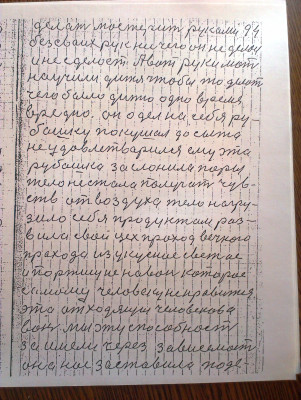 делат может ит руками 94
без своих рук ничего он не делал
и не сделает. А вот руки мат
научили дитя чтобы то делат
чего было дито одно время
вредно. он одел на себя ру-
башку покушал до сыта
неудовлетварился ему эта
рубашка заслонила поры
тело нестала получат чув-
ств от воздуха тело нагру-
зило себя продуктам раз-
вила свой цех проход вечного
прахода из укусное светлое
а поржи не навоз которое
самому человеку ненравится
это отходящи человекова
вон мы эту способност
заимели через зависемост
она нас заставила подв-